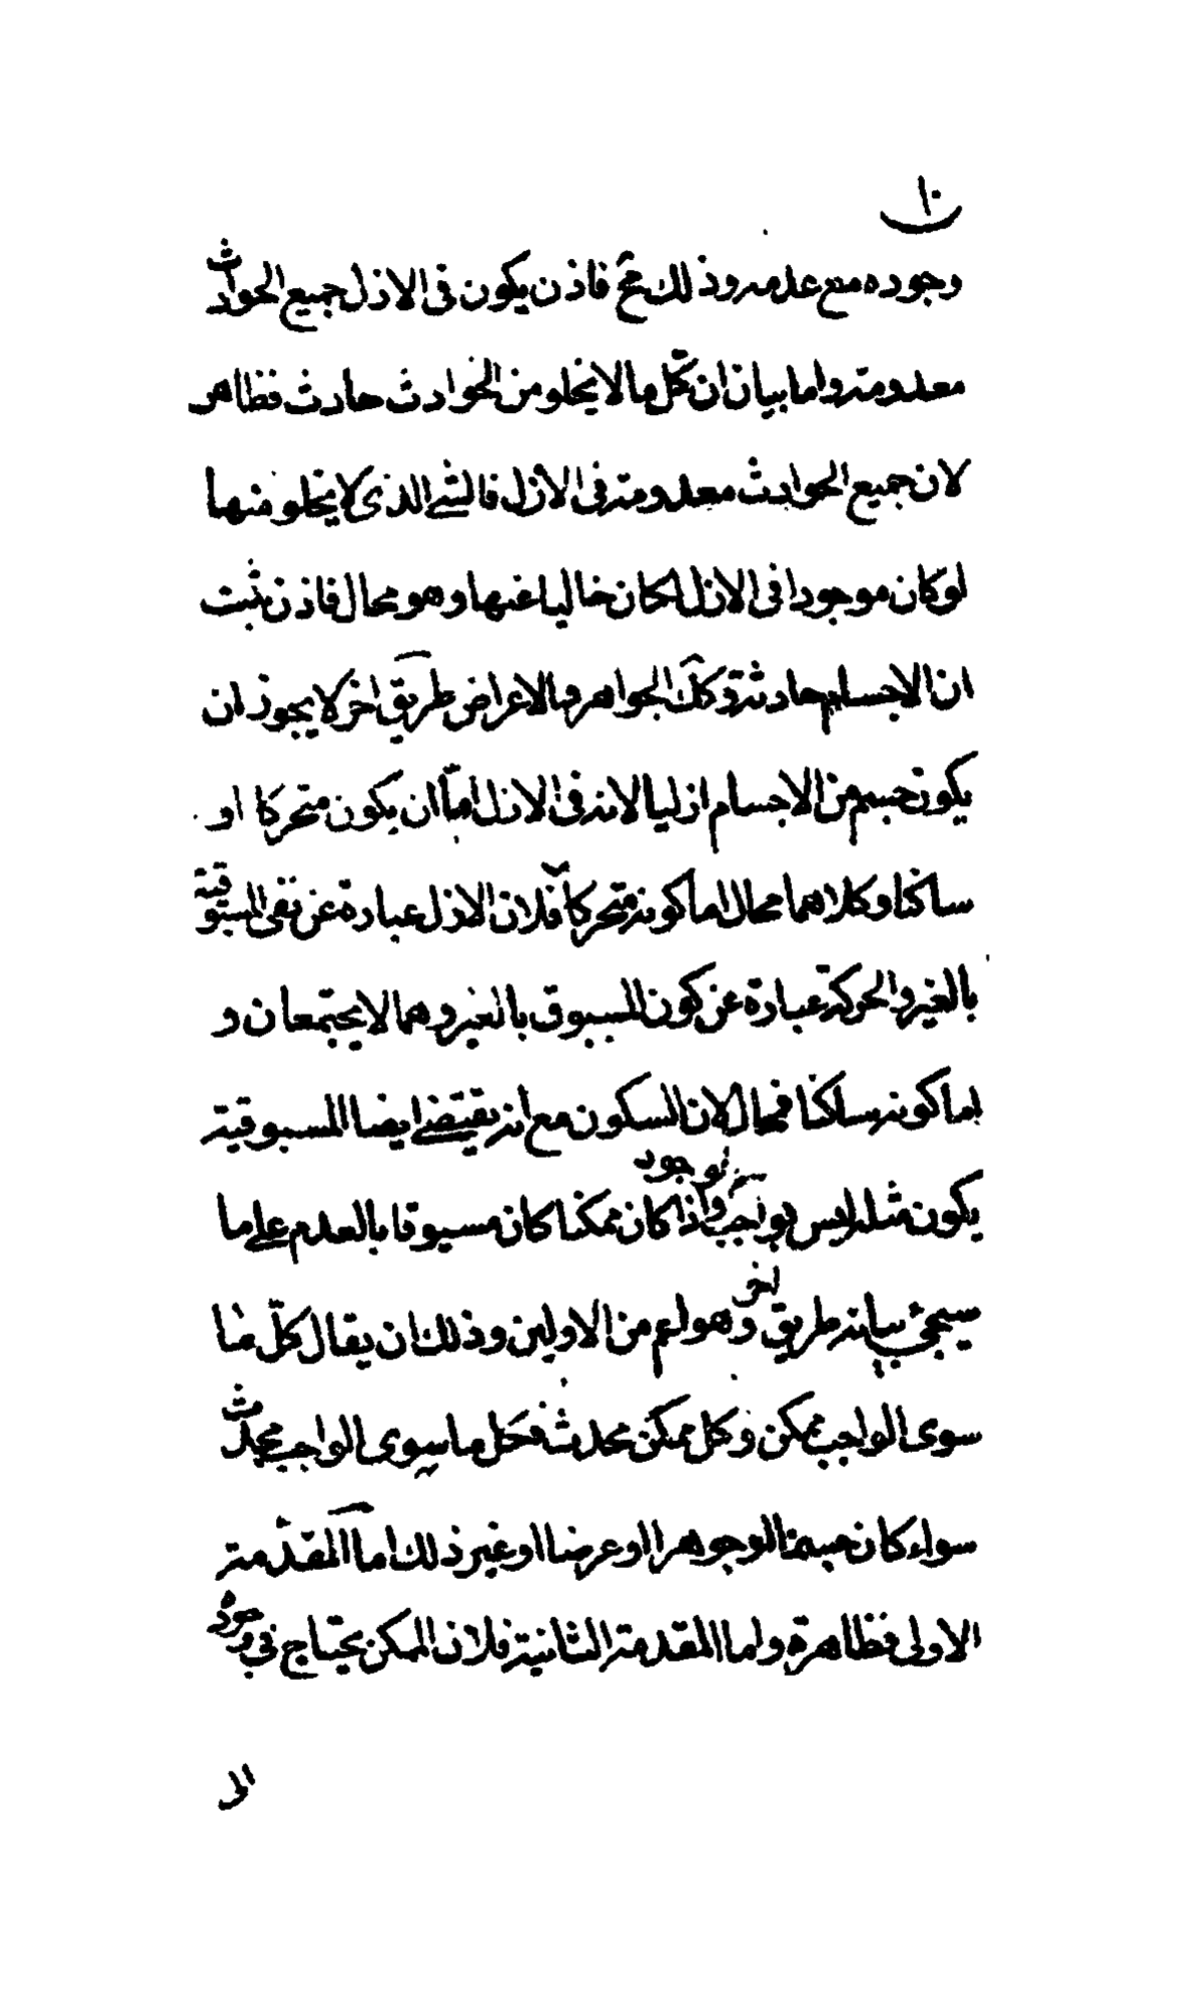 ١٠
وجوده مع عدمه وذلك مح فاذن يكون فى الازل جميع الحوادث
معدومة واما بيان ان كل ما لا يخلو من الحوادث حادث فظاهر
لان جميع الحوادث معدومة فى الازل فالشئ الذى لا يخلو منها
لو كان موجودا فى الازل لكان خاليا عنها وهو محال فاذن ثبت
ان الاجسام حادثة وكك الجواهر والاعراض طريق اخر لا يجوز ان
يكون جسم من الاجسام ازليا لانه فى الازل اما ان يكون متحركا او
ساكنا وكلاهما محال اما كونه متحركا فلان الازل عبارة عن نفى المسبوقية
بالغير والحركة عبارة عن كون المسبوق بالغير وهما لا يجتمعان و
اما كونه ساكنا فمحال لان السكون مع انه يقتضى ايضا المسبوقية
يكون مثله ليس بواجب الوجود واذا كان ممكنا كان مسبوقا بالعدم على ما
سيجئ بيانه طريق اخر وهو اعم من الاولين وذلك ان يقال كل ما
سوى الواجب ممكن وكل ممكن محدث فكل ما سوى الواجب محدث
سواء كان جسما او جوهرا او عرضا او غير ذلك اما المقدمة
الاولى فظاهرة واما المقدمة الثانية فلان الممكن يحتاج فى وجوده
الى